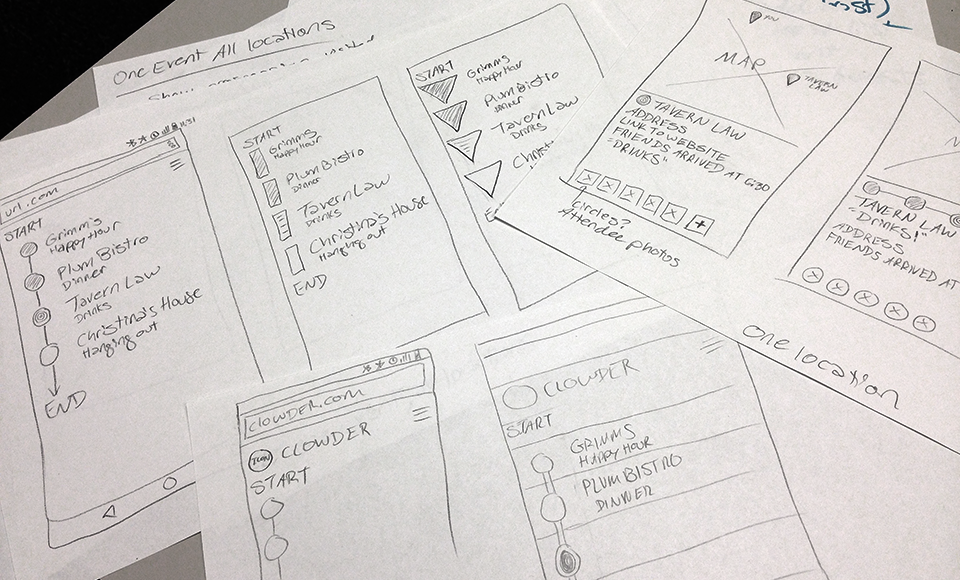 One Event All locations
url.com
START
Grimm's
Happy Hour
Plum Bistro
Dinner
Tavern Law
Drinks
Christina's House
Hanging out
END
START
Grimms
Happy Hour
Plum Bistro
Dinner
Tavern Law
Drinks
Christina's House
Hanging out
END
START
Grimms
Happy Hour
Plum Bistro
Dinner
Tavern Law
Drinks
YOU
MAP
TAVERN
LAW
TAVERN LAW
ADDRESS
LINK TO WEBSITE
FRIENDS ARRIVED AT 6:30
"DRINKS"
+
circles?
Attendee photos
TAVERN LAW
"Drinks!"
ADDRESS
FRIENDS ARRIVED AT
one location
clowder.com
ICON CLOWDER
START
CLOWDER
START
GRIMMS
HAPPY HOUR
PLUM BISTRO
DINNER